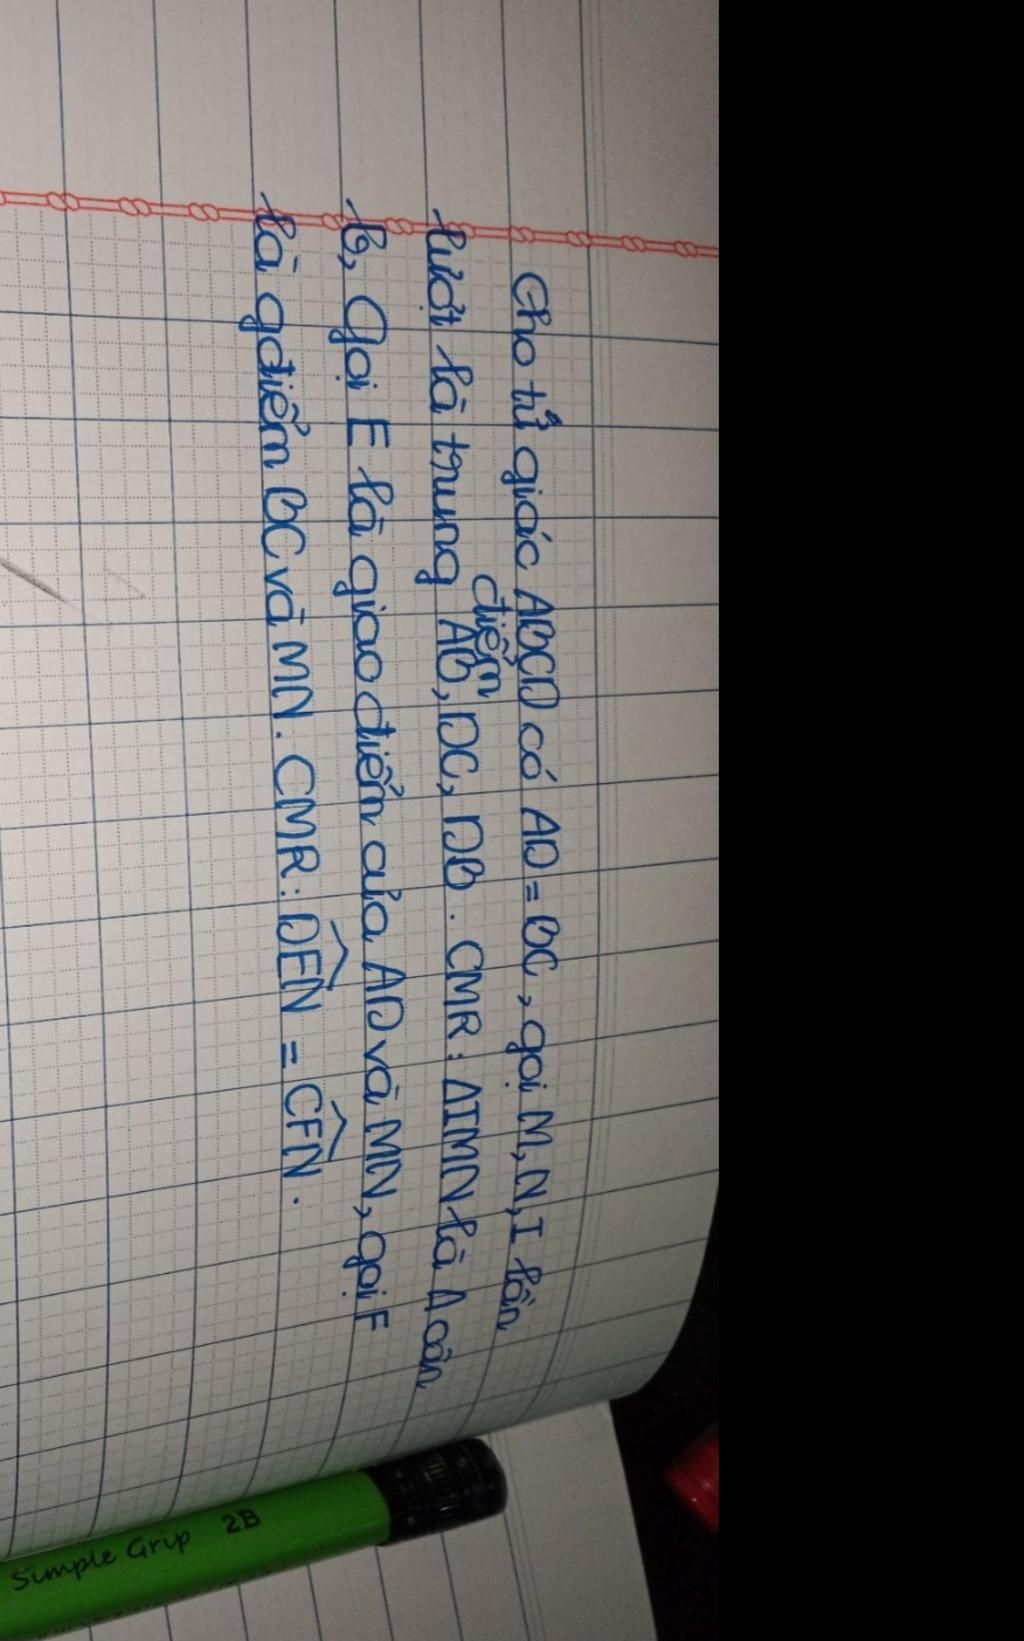 Cho tứ giác ABCD có AD = BC, gọi M, N, I lần
lượt là trung điểm AB, DC, DB. CMR: ΔIMN là Δ cân
b, Gọi E là giao điểm của AD và MN, gọi F
là gđiểm BC và MN. CMR: DEN̂ = CFN̂.
Simple Grip 2B